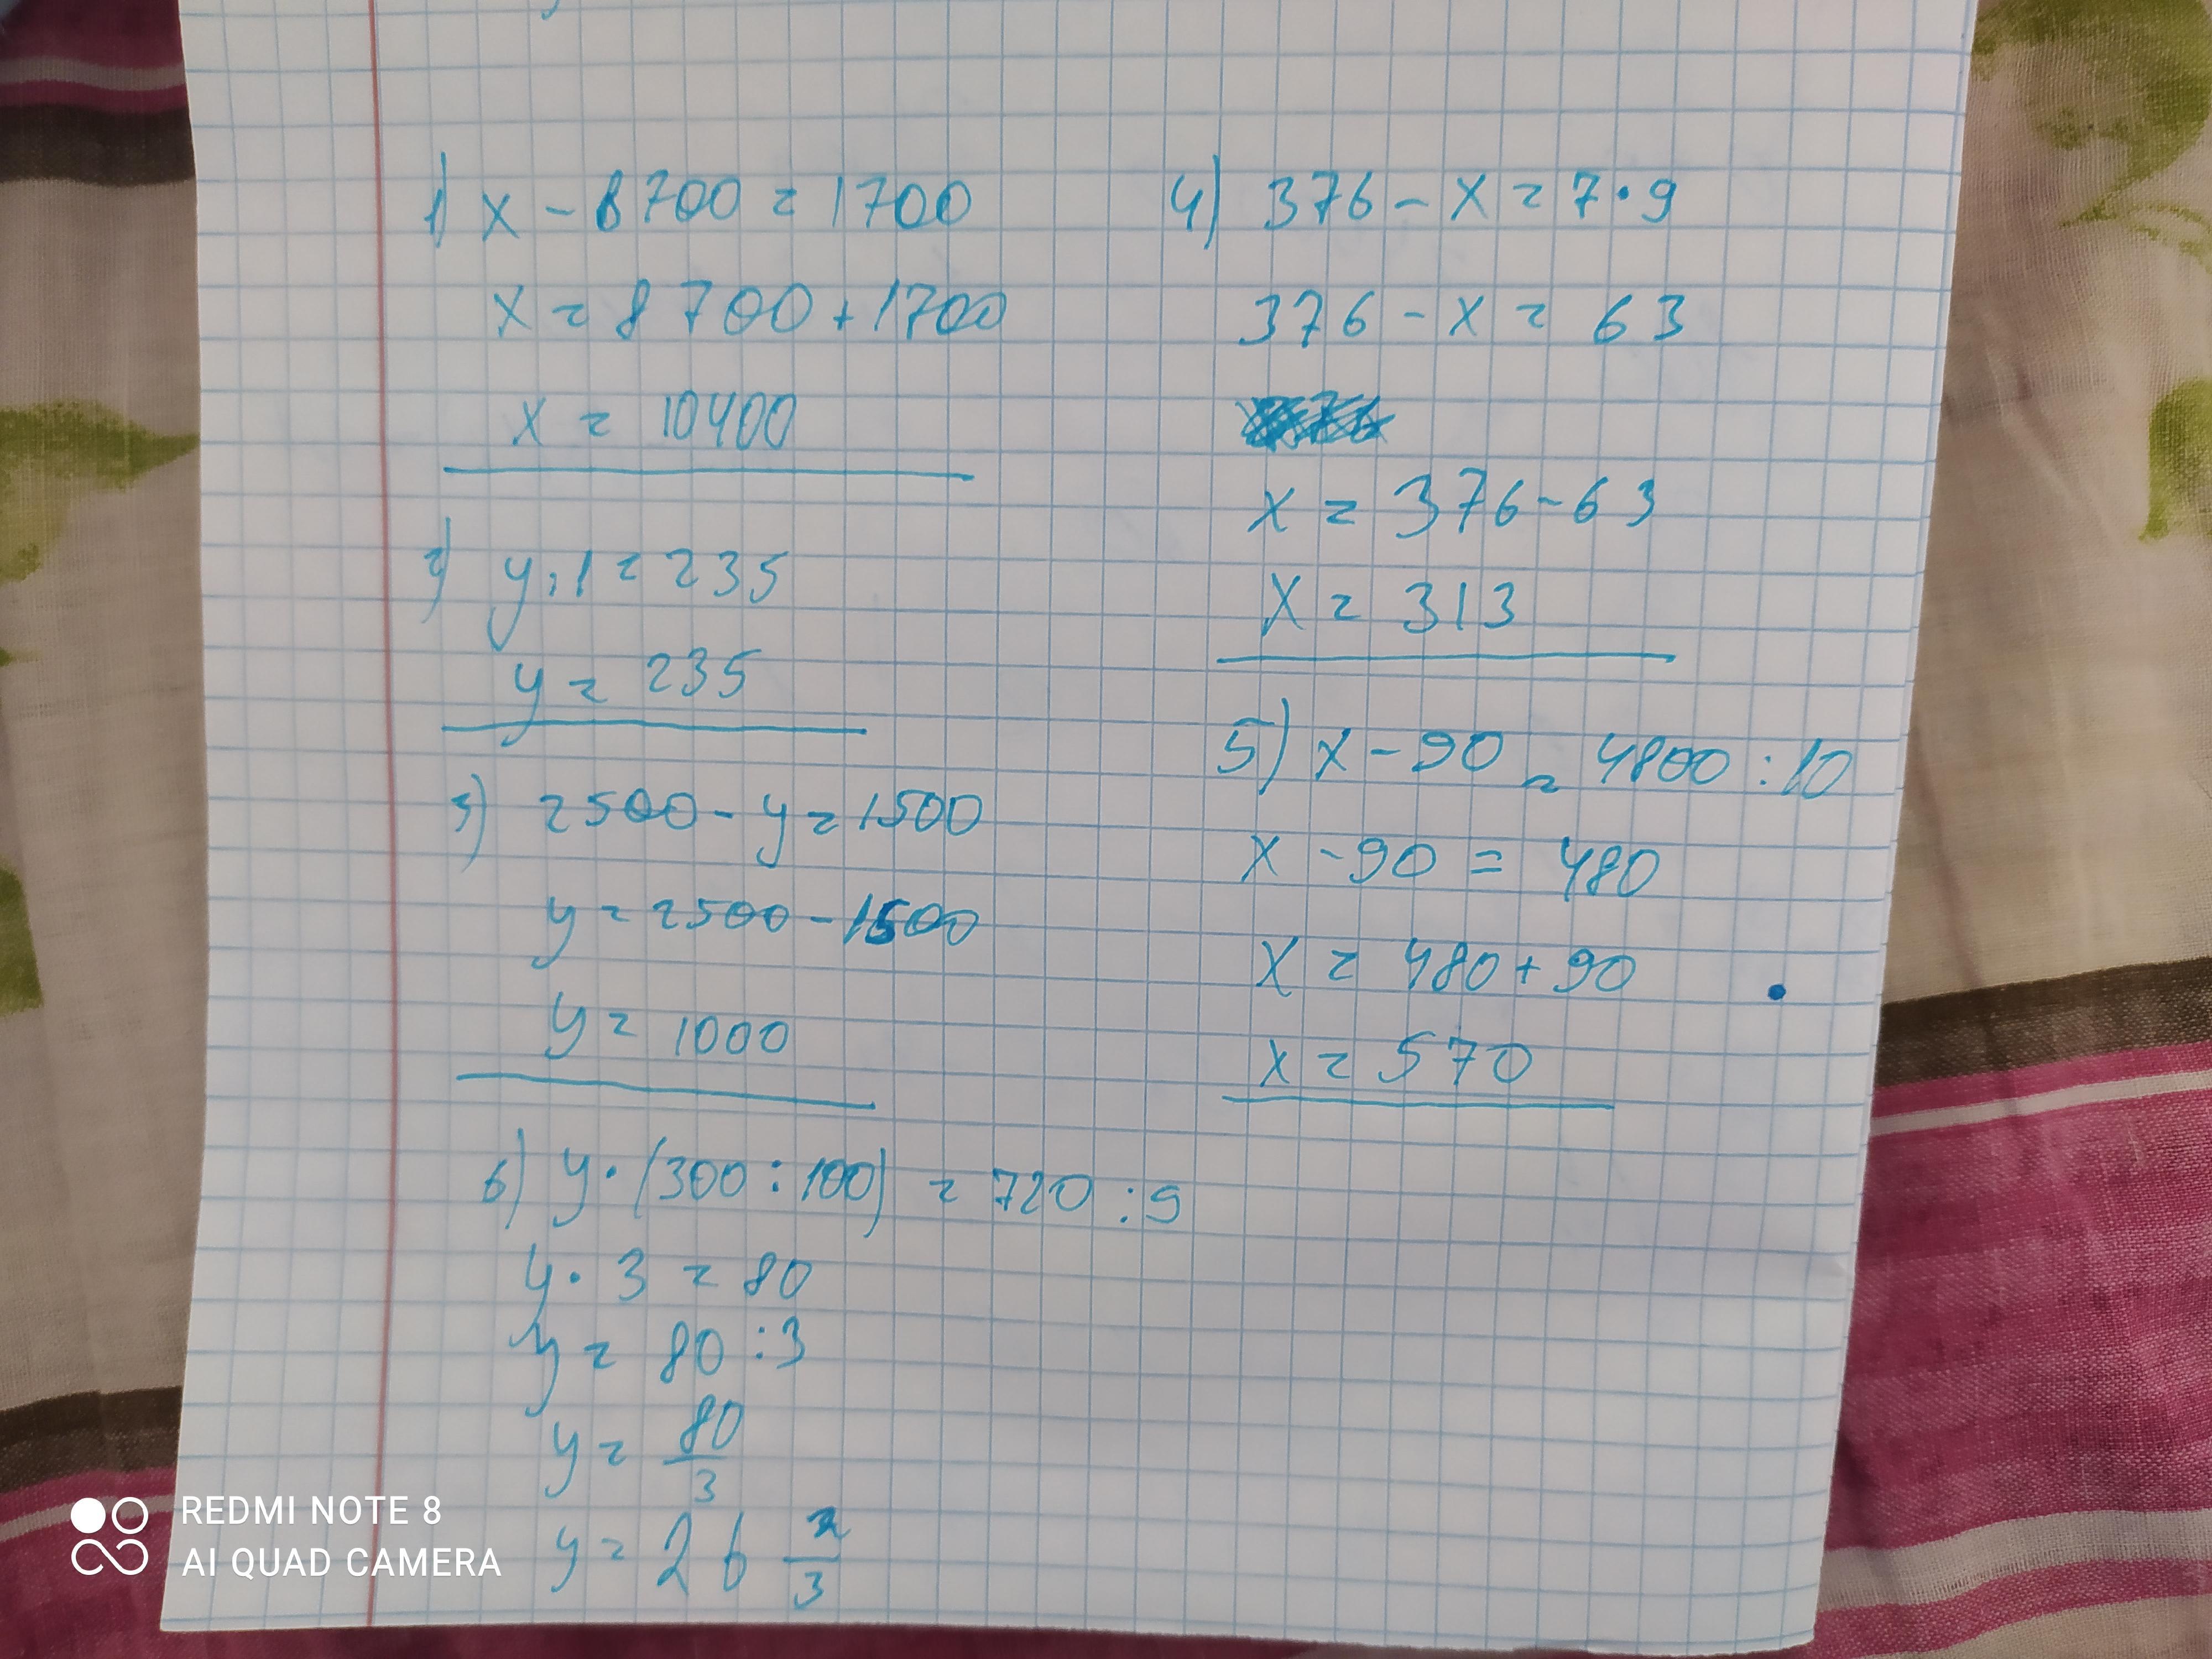 1) x - 8700 = 1700
x = 8700 + 1700
x = 10400
2) y : 1 = 235
y = 235
3) 2500 - y = 1500
y = 2500 - 1500
y = 1000
4) 376 - x = 7 · 9
376 - x = 63
x = 376 - 63
x = 313
5) x - 90 = 4800 : 10
x - 90 = 480
x = 480 + 90
x = 570
6) y · (300 : 100) = 720 : 9
y · 3 = 80
y = 80 : 3
y = 80/3
y = 26 2/3
REDMI NOTE 8
AI QUAD CAMERA